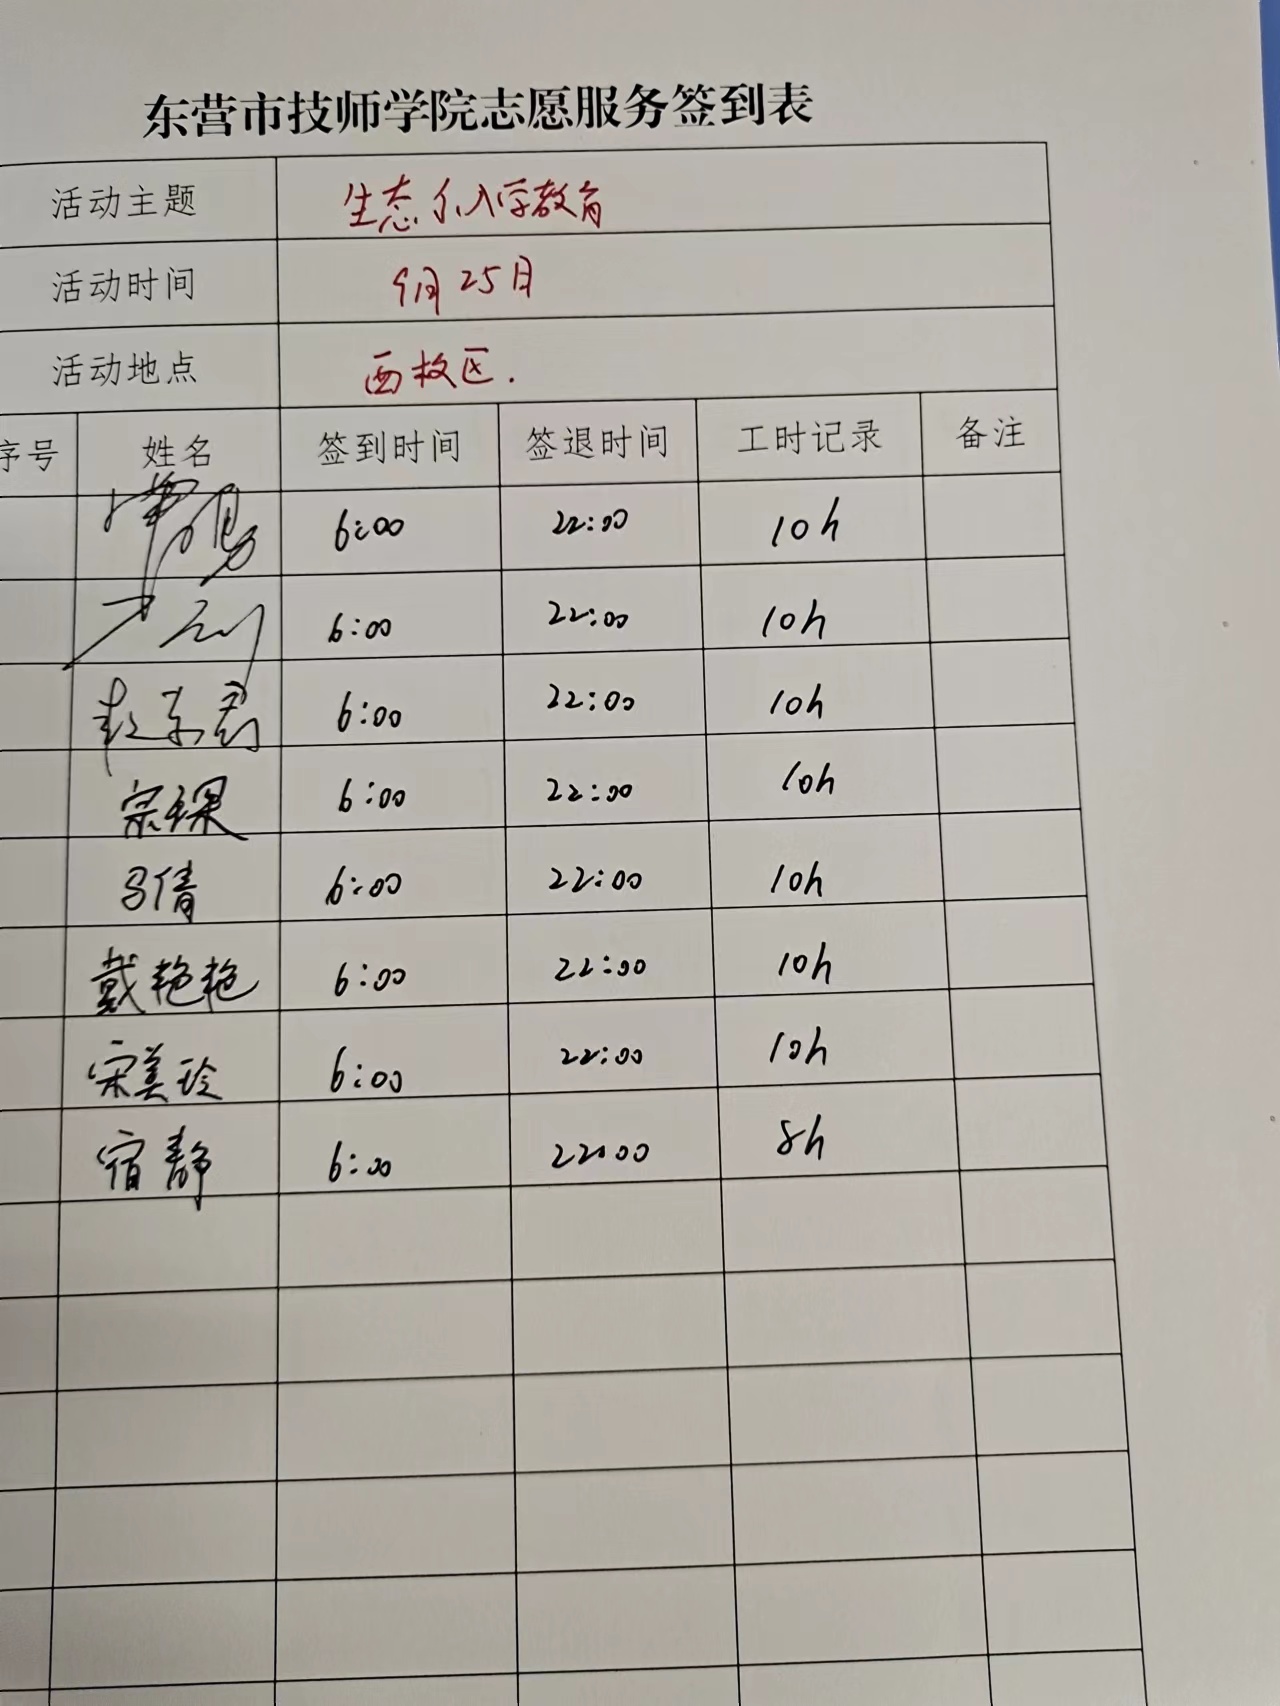 东营市技师学院志愿服务签到表
活动主题 生态系入学教育
活动时间 9月25日
活动地点 西校区.
序号 姓名 签到时间 签退时间 工时记录 备注
6:00 22:00 10h
6:00 22:00 10h
6:00 22:00 10h
宗 6:00 22:00 10h
马倩 6:00 22:00 10h
戴艳艳 6:00 22:00 10h
宋美玲 6:00 22:00 10h
宿静 6:00 22:00 8h